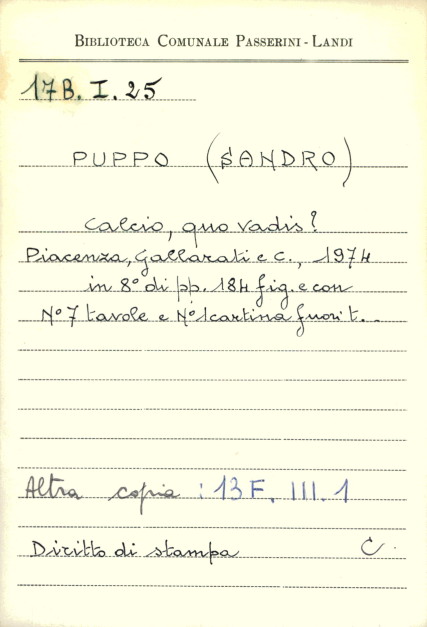 BIBLIOTECA COMUNALE PASSERINI-LANDI
17B. I. 25
PUPPO (SANDRO)
Calcio, quo vadis?
Piacenza, Gallarati e C., 1974
in 8° di pp. 184 fig. e con
N° 7 tavole e N° 1 cartina fuori t.
Altra copia : 13 F. III. 1
Diritto di stampa C.